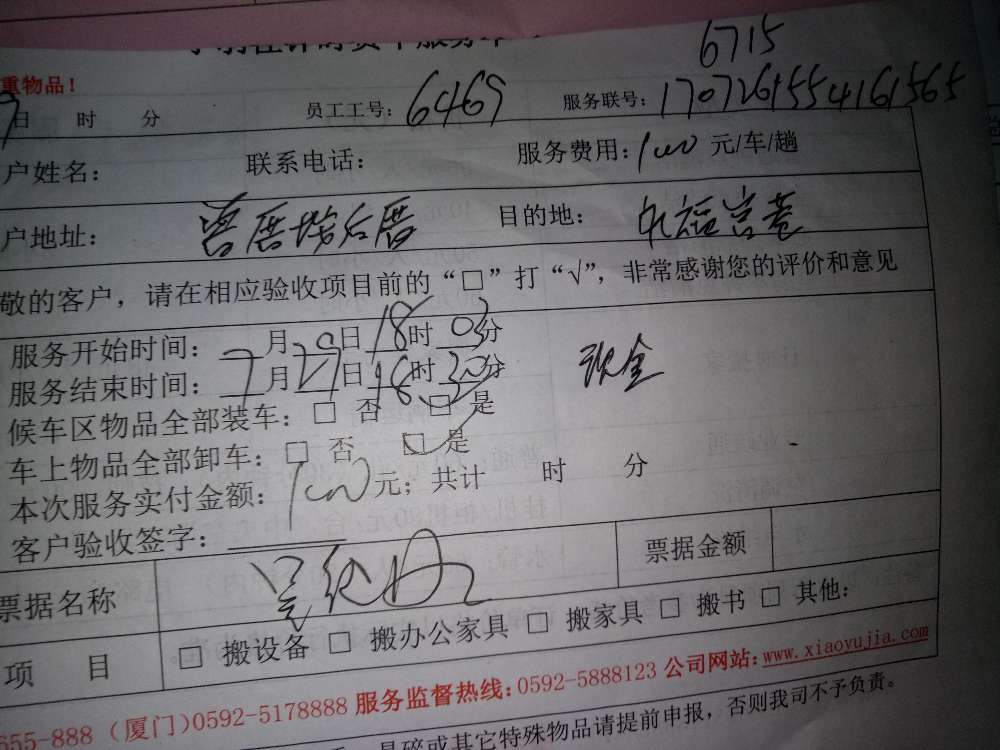 6715
重物品！
日 时 分 员工工号：6469 服务联号：170726155416 1565
户姓名： 联系电话： 服务费用：100 元/车/趟
户地址： 曾厝垵后厝 目的地：
敬的客户，请在相应验收项目前的“□”打“√”，非常感谢您的评价和意见
服务开始时间： 月 日 18时 03分
服务结束时间：7月29日 18时 30分 现金
候车区物品全部装车：□ 否 □ 是
车上物品全部卸车：□ 否 □ 是
本次服务实付金额：100元；共计 时 分
客户验收签字：
票据名称 票据金额
项 目 □ 搬设备 □ 搬办公家具 □ 搬家具 □ 搬书 □ 其他：
655-888（厦门）0592-5178888 服务监督热线：0592-5888123 公司网站：www.xiaoyujia.com
易碎或其它特殊物品请提前申报，否则我司不予负责。